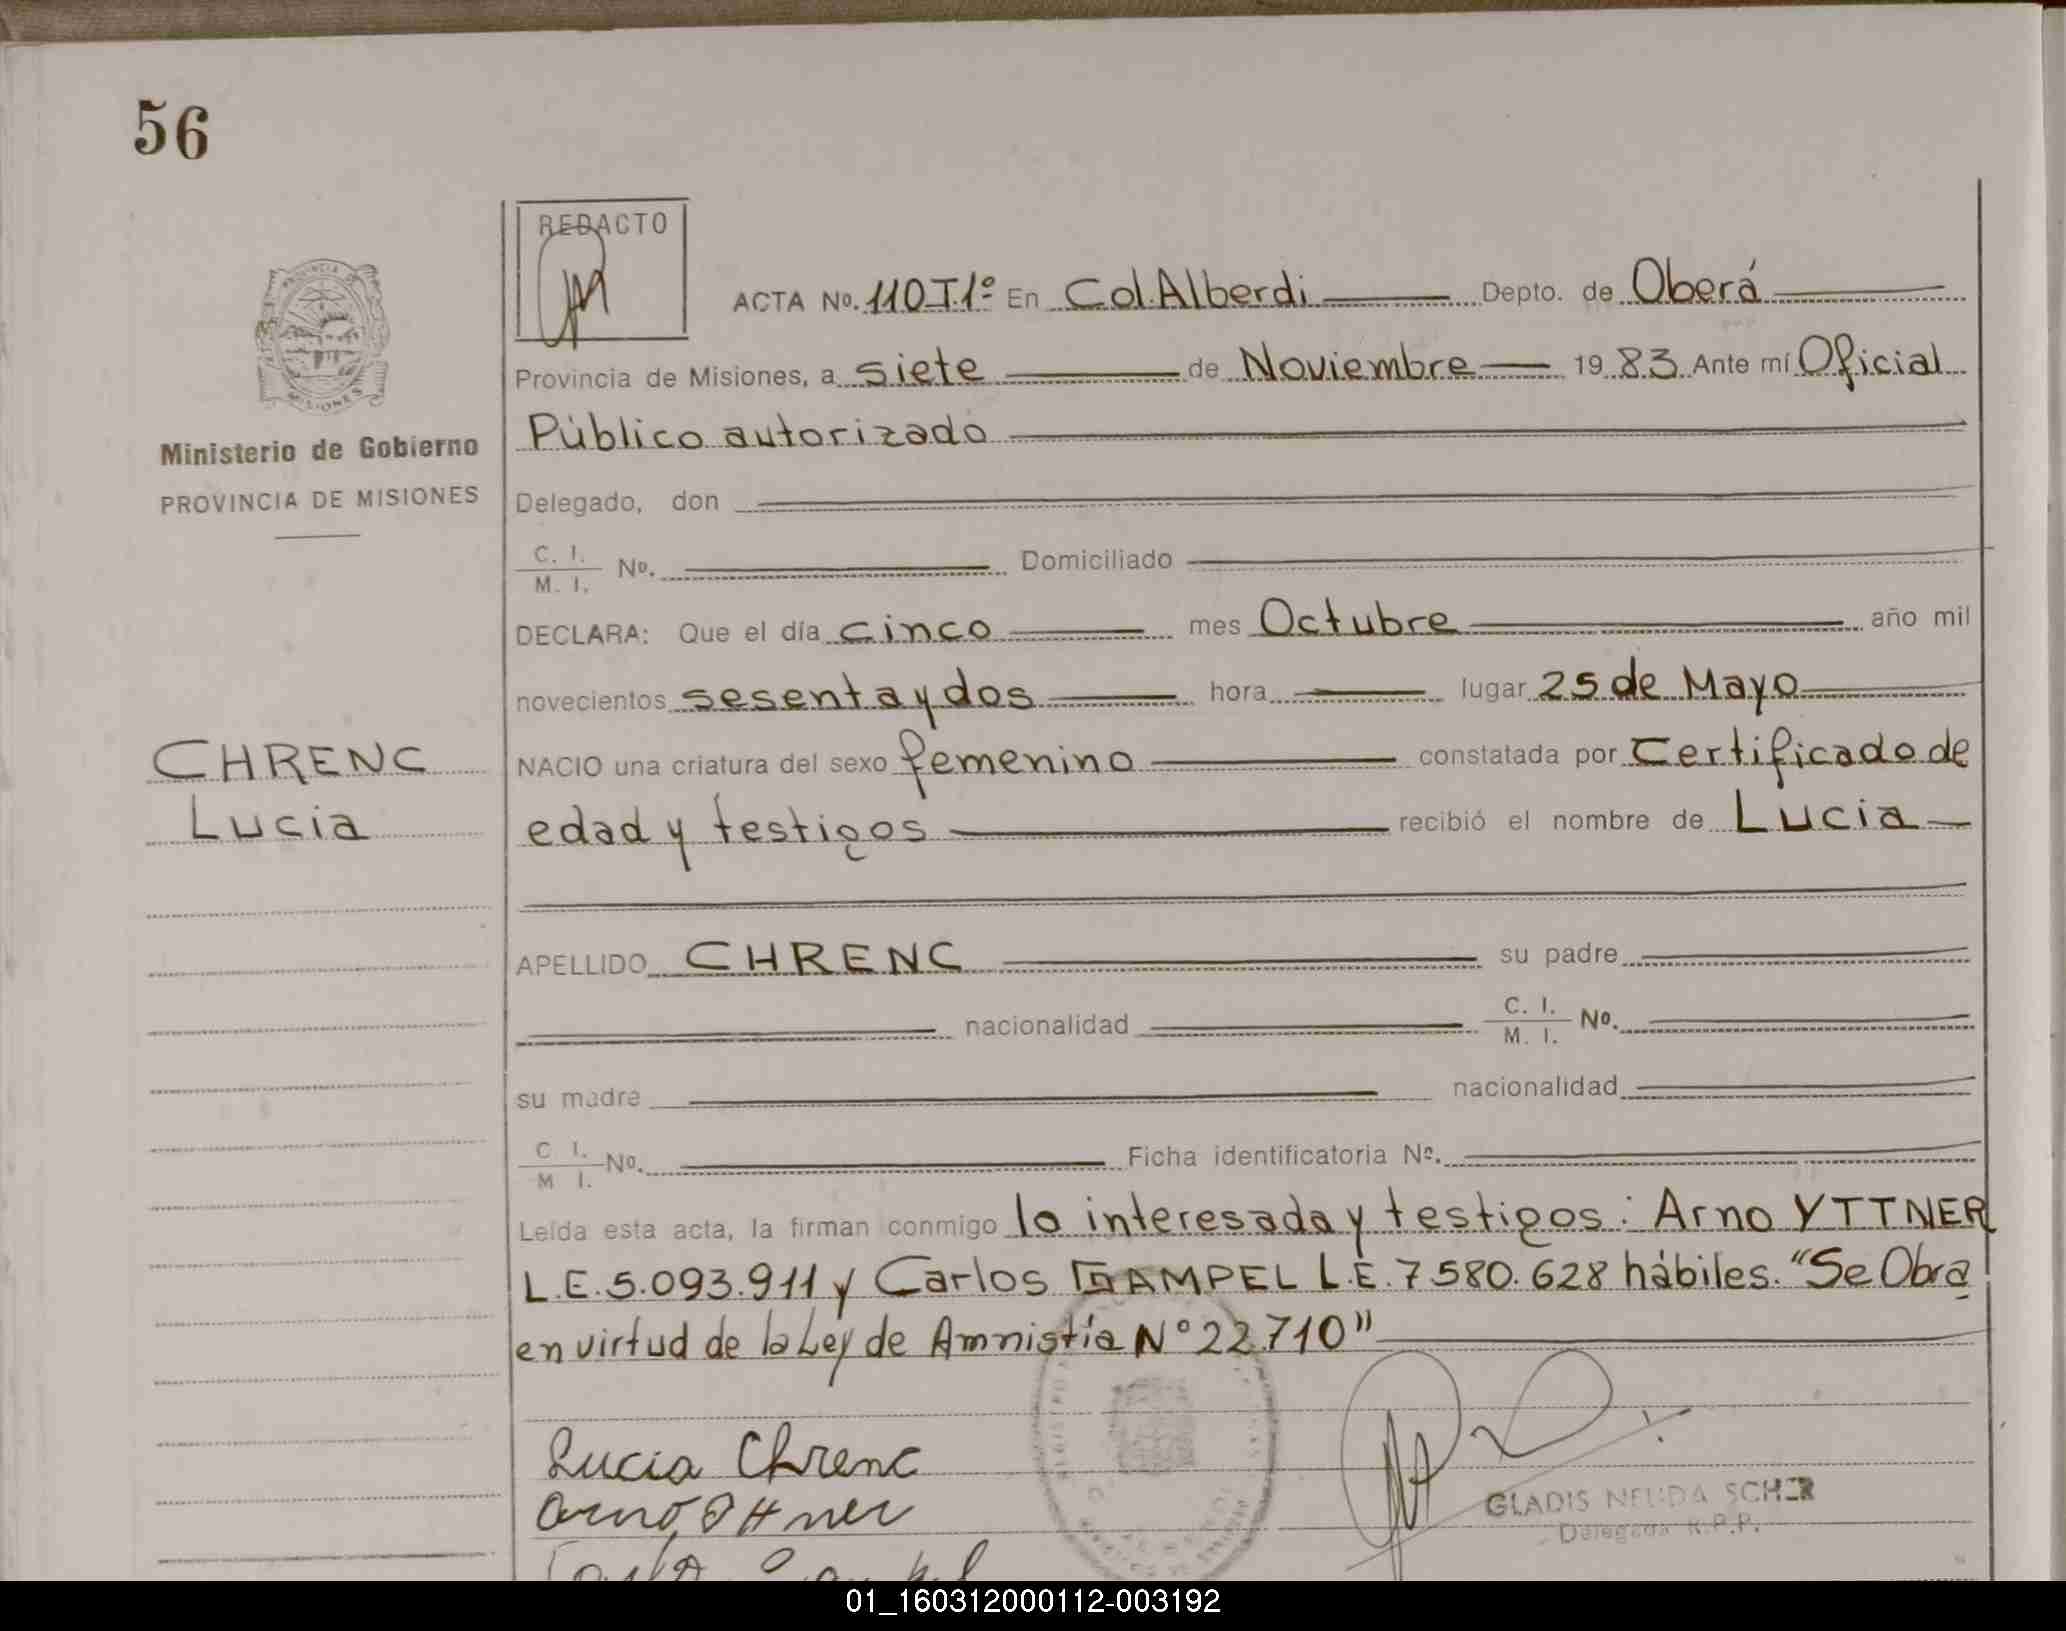 56
REDACTO
ACTA No. 110 T.1º En Col. Alberdi Depto. de Oberá
Provincia de Misiones, a siete de Noviembre 19 83 Ante mí Oficial
Público autorizado
Ministerio de Gobierno
PROVINCIA DE MISIONES
Delegado, don
C. I.
M. I. No. Domiciliado
DECLARA: Que el día cinco mes Octubre año mil
novecientos sesenta y dos hora lugar 25 de Mayo
CHRENC
Lucia
NACIO una criatura del sexo femenino constatada por Certificado de
edad y testigos recibió el nombre de Lucia
APELLIDO CHRENC su padre
nacionalidad C. I. M. I. No.
su madre nacionalidad
C I. M I. No. Ficha identificatoria Nº.
Leída esta acta, la firman conmigo la interesada y testigos: Arno YTTNER
L.E. 5.093.911 y Carlos GAMPEL L.E. 7580.628 hábiles. "Se Obra
en virtud de la Ley de Amnistía Nº 22.710"
Lucia Chrenc
GLADIS NEUDA SCHER
Delegada R.P.P.
01_160312000112-003192